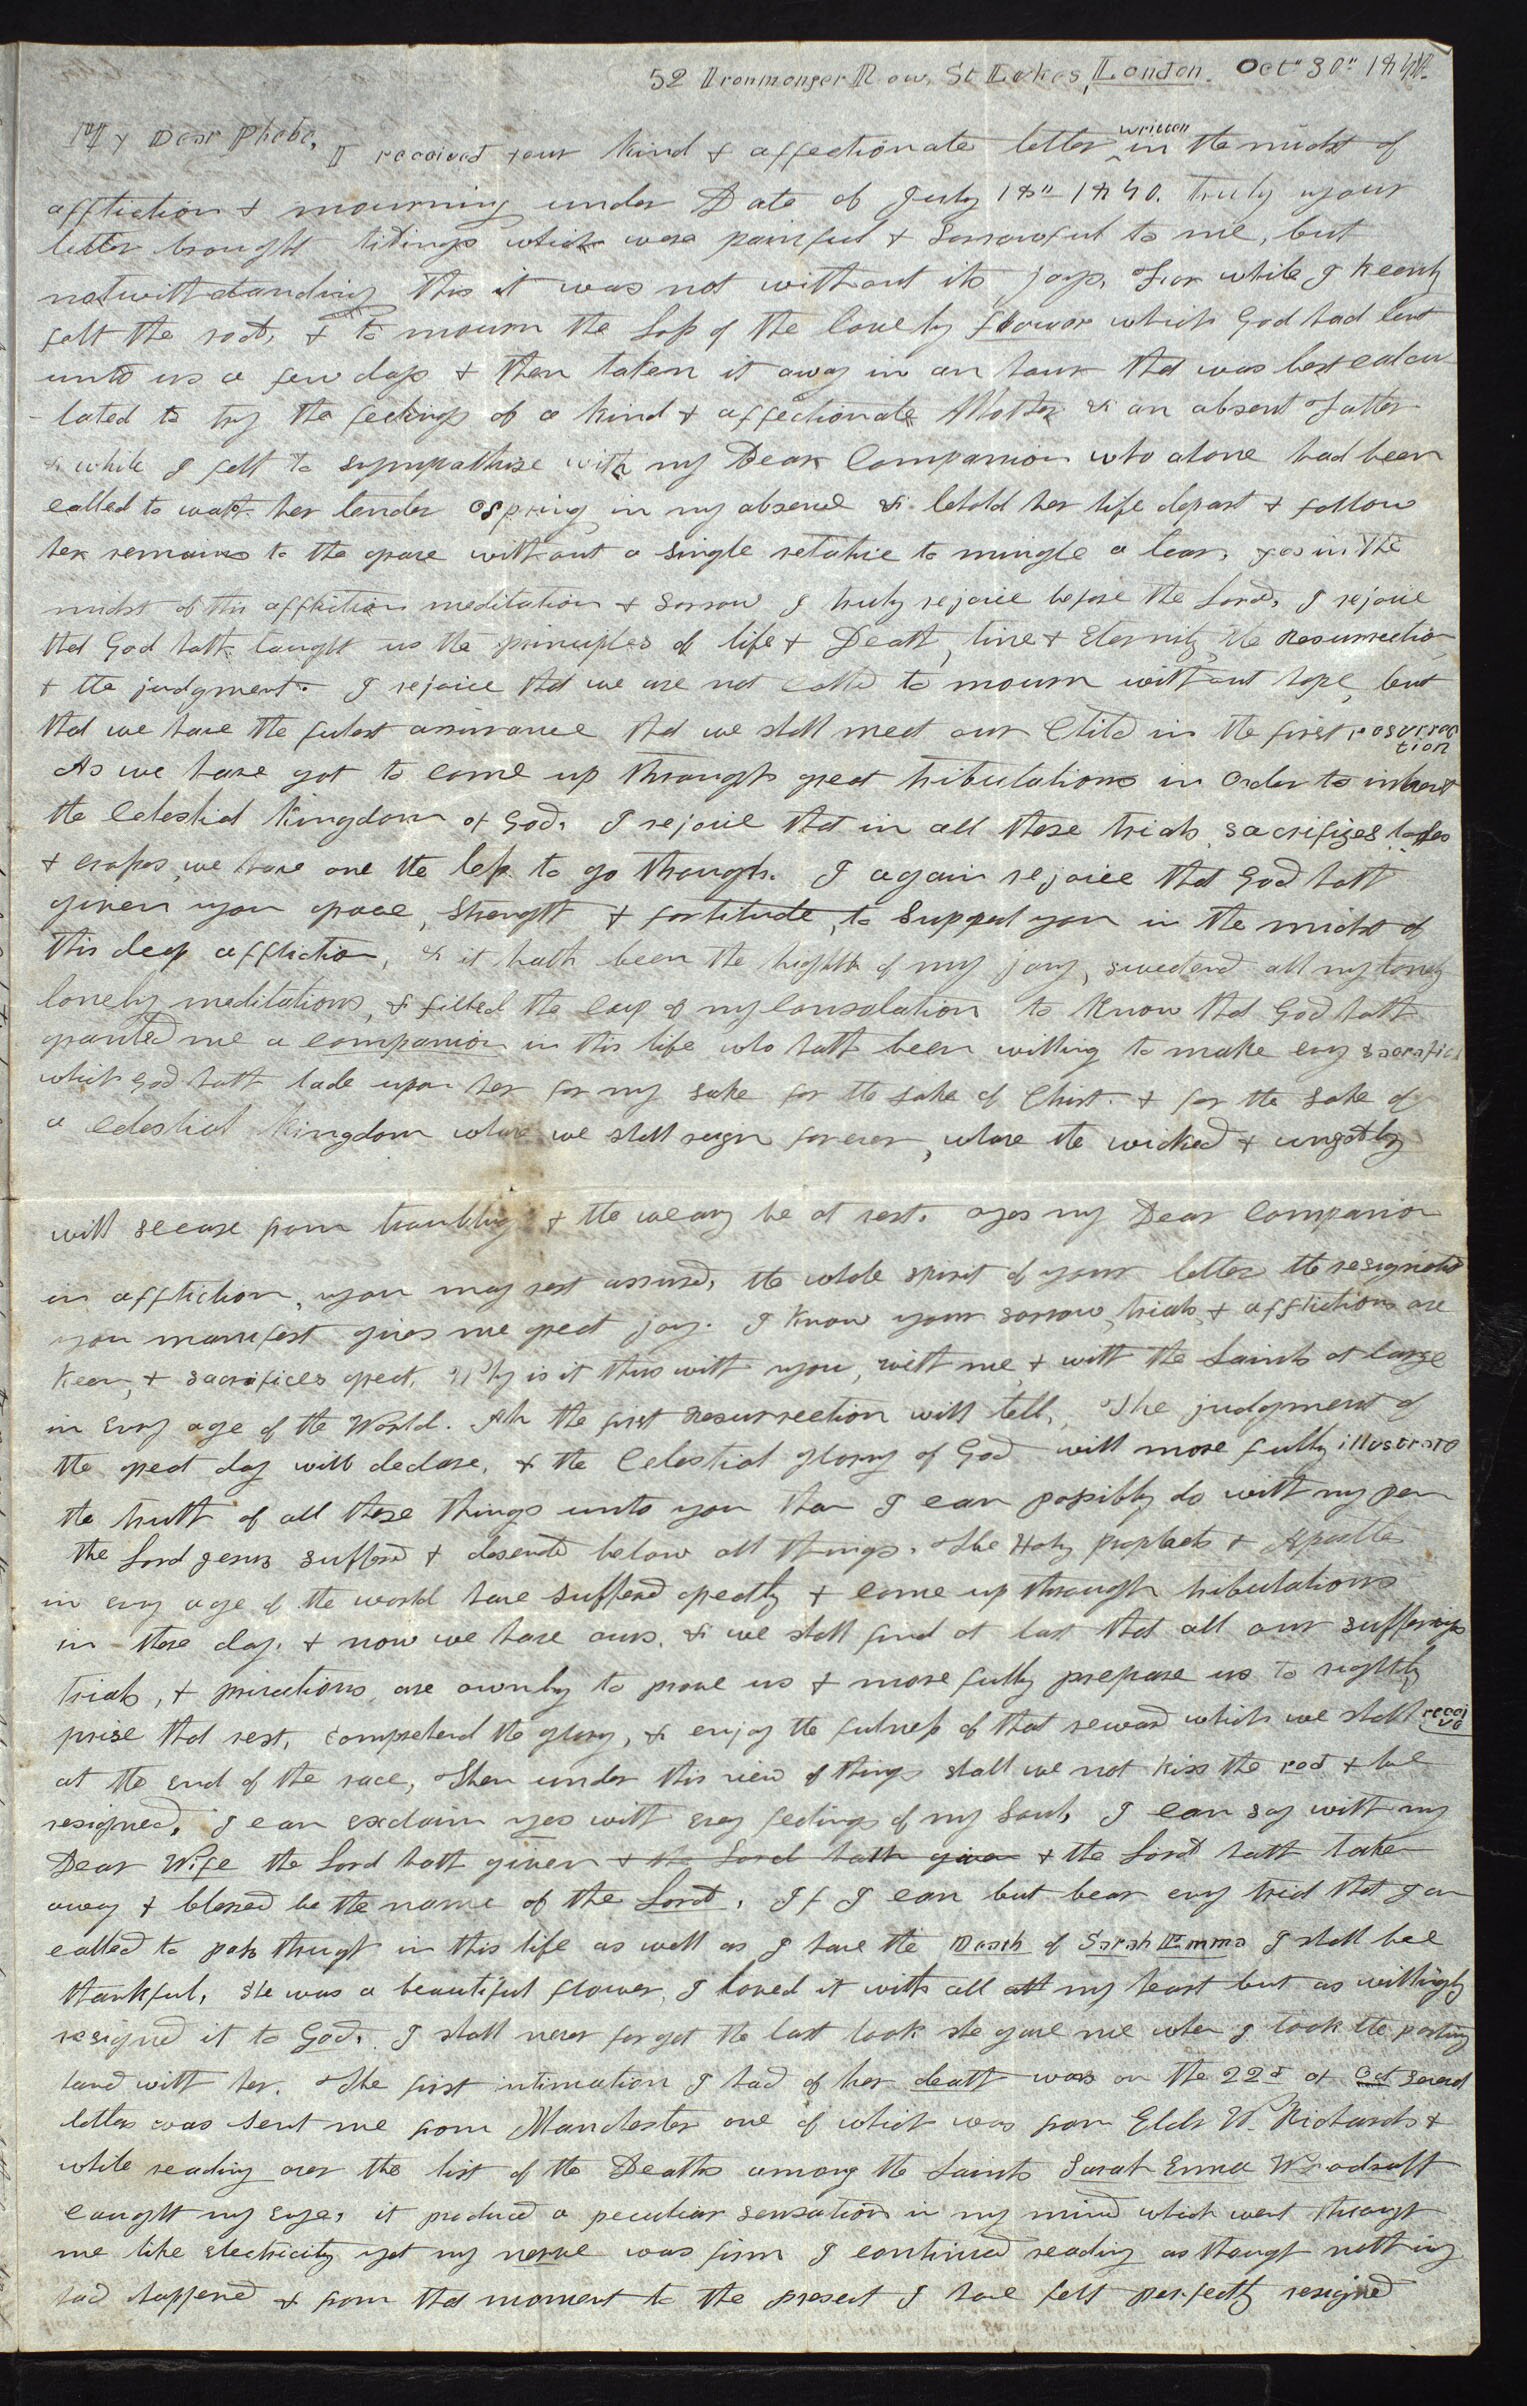 52 Ironmonger Row, St Lukes, London. Oct" 30" 1840.
My Dear Phebe, I received your kind & affectionate letter written in the midst of
affliction & mourning under Date of July 18" 1840. truly your
letter brought tidings which were painful & sorrowful to me, but
notwithstanding this it was not without its joys, For while I keenly
felt the rod, & to mourn the loss of the lovely flower which God had lent
unto us a few days & then taken it away in an hour that was best calcu
-lated to try the feelings of a kind & affectionate Mother & an absent Father
& while I felt to sympathise with my Dear Companion who alone had been
called to watch her tender ospring in my absence & behold her life depart & follow
her remains to the grave without a single relative to mingle a tear, yes in the
midst of this affliction meditation & sorrow I truly rejoice before the Lord, I rejoice
that God hath taught us the principles of life & Death, time & Eternity, the Resurrection
& the judgment. I rejoice that we are not called to mourn without hope, but
that we have the fulest assurance that we shall meet our Child in the first resurrec
tion
As we have got to come up through great tribulations in order to inherit
the Celestial kingdom of God, I rejoice that in all these trials, sacrifizes, losses
& crosses, we have one the less to go through. I again rejoice that God hath
given you grace, strength & fortitude, to support you in the midst of
this deep affliction, & it hath been the highth of my joy, swetend all my lonely
lonely meditations, & filled the cup of my consolation to know that God hath
granted me a companion in this life who hath been willing to make evry sacrafice
which God hath lade upon her for my sake for the sake of Christ & for the sake of
a celestial kingdom where we shall reign forever, where the wicked & ungodly
will secease from troubling & the weary be at rest. ayes my Dear Companion
in affliction, you may rest assured, the whole spirit of your letter the resignation
you manifest gives me great joy. I know your sorrow, trials, & afflictions are
keen, & sacrifices great, Why is it thus with you, with me, & with the Saints at large
in evry age of the World. Ah the first Resurrection will tell, The judgment of
the great day will declare, & the Celestial glory of God will more fully illustrate
the truth of all these things unto you than I can possibly do with my pen
the Lord Jesus suffered & desended below all things. The Holy prophets & Apostles
in evry age of the world have sufferd greatly & come up through tribulations
in there day, & now we have ours, & we shall find at last that all our sufferings
trials, & privations, are ownly to prove us & more fully prepare us to rightly
prise that rest, comprehend the glory, & enjoy the fulness of that reward which we shall recei
ve
at the end of the race, Then under this view of things shall we not kiss the rod & be
resigned, I can exclaim yes with evry feelings of my soul, I can say with my
Dear Wife the Lord hath given & the Lord hath given & the Lord hath taken
away & blessed be the name of the Lord, If I can but bear evry trial that I am
called to pass through in this life as well as I have the Death of Sarah Emma I shall bee
thankful, she was a beautiful flower, I loved it with all all my heart but as willingly
resigned it to God, I shall never forget the last look she gave me when I took the parting
hand with her. The first intimation I had of her death was on the 22d of Oct several
letters was sent me from Manchester one of which was from Eldr W. Richards &
while reading over the list of the Deaths among the Saints Sarah Emma Woodruff
caught my eye, it produced a peculiar sensation in my mind which went through
me like electricity yet my nerve was firm I continued reading as though nothing
had happened & from that moment to the present I have felt perfectly resigned